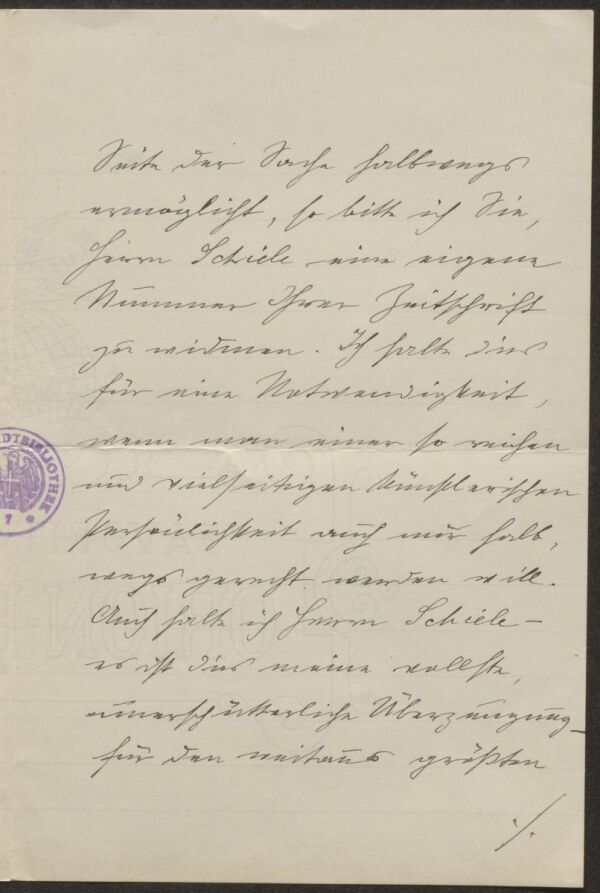 Seite der Sache halbwegs
ermöglicht, so bitte ich Sie,
Herrn Schiele eine eigene
Nummer Ihrer Zeitschrift
zu widmen. Ich halte dies
für eine Notwendigkeit,
wenn man einer so reichen
und vielseitigen künstlerischen
Persönlichkeit auch nur halb,
wegs gerecht werden will.
Auch halte ich Herrn Schiele –
es ist dies meine vollste,
unerschütterliche Überzeugung –
für den weitaus größten
./.
DTBIBLIOTHEK